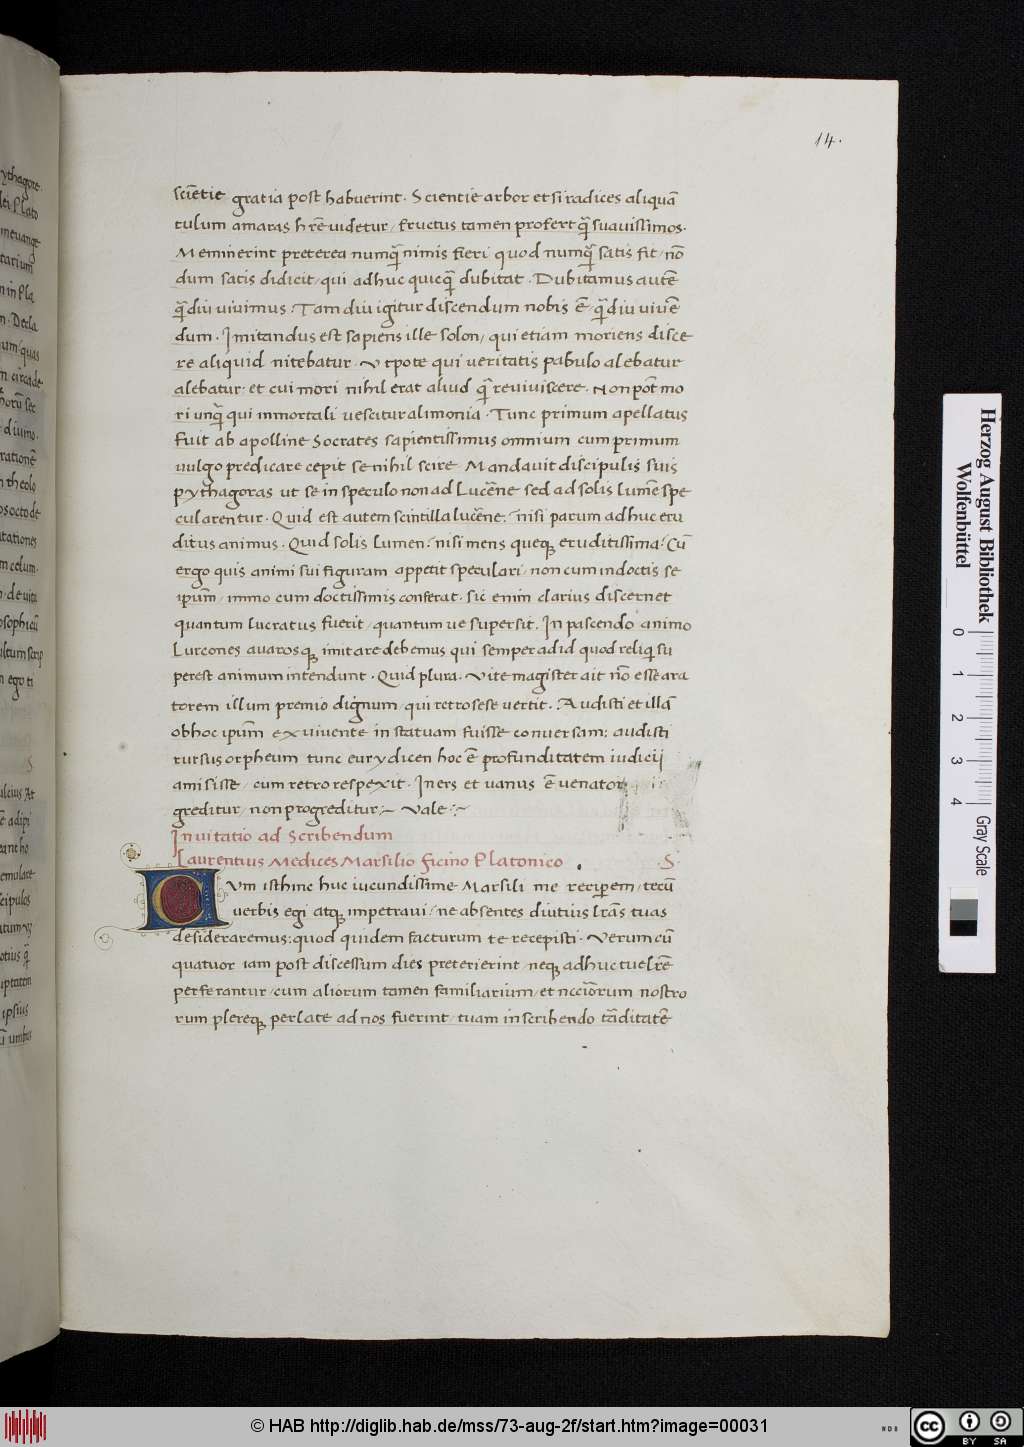 14.
sciẽtie gratia post habuerint. Scientie arbor et si radices aliquã
tulum amaras hr̃e videtur / fructus tamen profert q̃ suavissimos.
Meminerint preterea numq̃ nimis fieri quod numq̃ satis fit / nõ
dum satis didicit / qui adhuc quicq̃ dubitat. Dubitamus autẽ
q̃diu vivimus: Tam diu igitur discendum nobis ẽ / q̃diu vivẽ
dum. Imitandus est sapiens ille solon / qui etiam moriens disce
re aliquid nitebatur. Utpote qui veritatis pabulo alebatur
alebatur: et cui mori nihil erat aliud q̃ reviviscere. Non põt mo
ri unq̃ qui immortali vescitur alimonia. Tunc primum apellatus
fuit ab apolline Socrates sapientissimus omnium cum primum
vulgo predicare cepit se nihil scire. Mandavit discipulis suis
pythagoras ut se in speculo non ad Lucẽne sed ad solis lumẽ spe
cularentur. Quid est autem scintilla lucẽne: nisi parum adhuc eru
ditus animus. Quid solis lumen: nisi mens queq; eruditissima? Cũ
ergo quis animi sui figuram appetit speculari / non cum indoctis se
ipũm / immo cum doctissimis conferat. sic enim clarius discernet
quantum lucratus fuerit / quantum ve supersit. In pascendo animo
Lurcones avarosq; imitare debemus qui semper ad id quod reliq̃ su
perest animum intendunt. Quid plura. Vite magister ait nõ esse ara
torem illum premio dignum / qui retro sese vertit. Audisti et illã
ob hoc ipũm ex vivente in statuam fuisse conversam: audisti
rursus orpheum tunc eurydicen hoc ẽ profunditatem iudicij
amisisse / cum retro respexit. Iners et vanus ẽ venator
greditur / non progreditur. Vale.
Invitatio ad Scribendum
Laurentius Medices Marsilio Ficino Platonico .S.
CUm isthinc huc iucundissime Marsili me reciperem / tecũ
verbis egi atq; impetravi / ne absentes diutius lr̃as tuas
desideraremus: quod quidem facturum te recepisti. Verum cũ
quatuor iam post discessum dies preterierint / neq; adhuc tue lr̃e
perferantur / cum aliorum tamen familiarium / et nccĩorum nostro
rum plereq; perlate ad nos fuerint / tuam in scribendo tãditatẽ
Herzog August Bibliothek
Wolfenbüttel
0 1 2 3 4
Gray Scale
© HAB http://diglib.hab.de/mss/73-aug-2f/start.htm?image=00031
WDB
cc BY SA